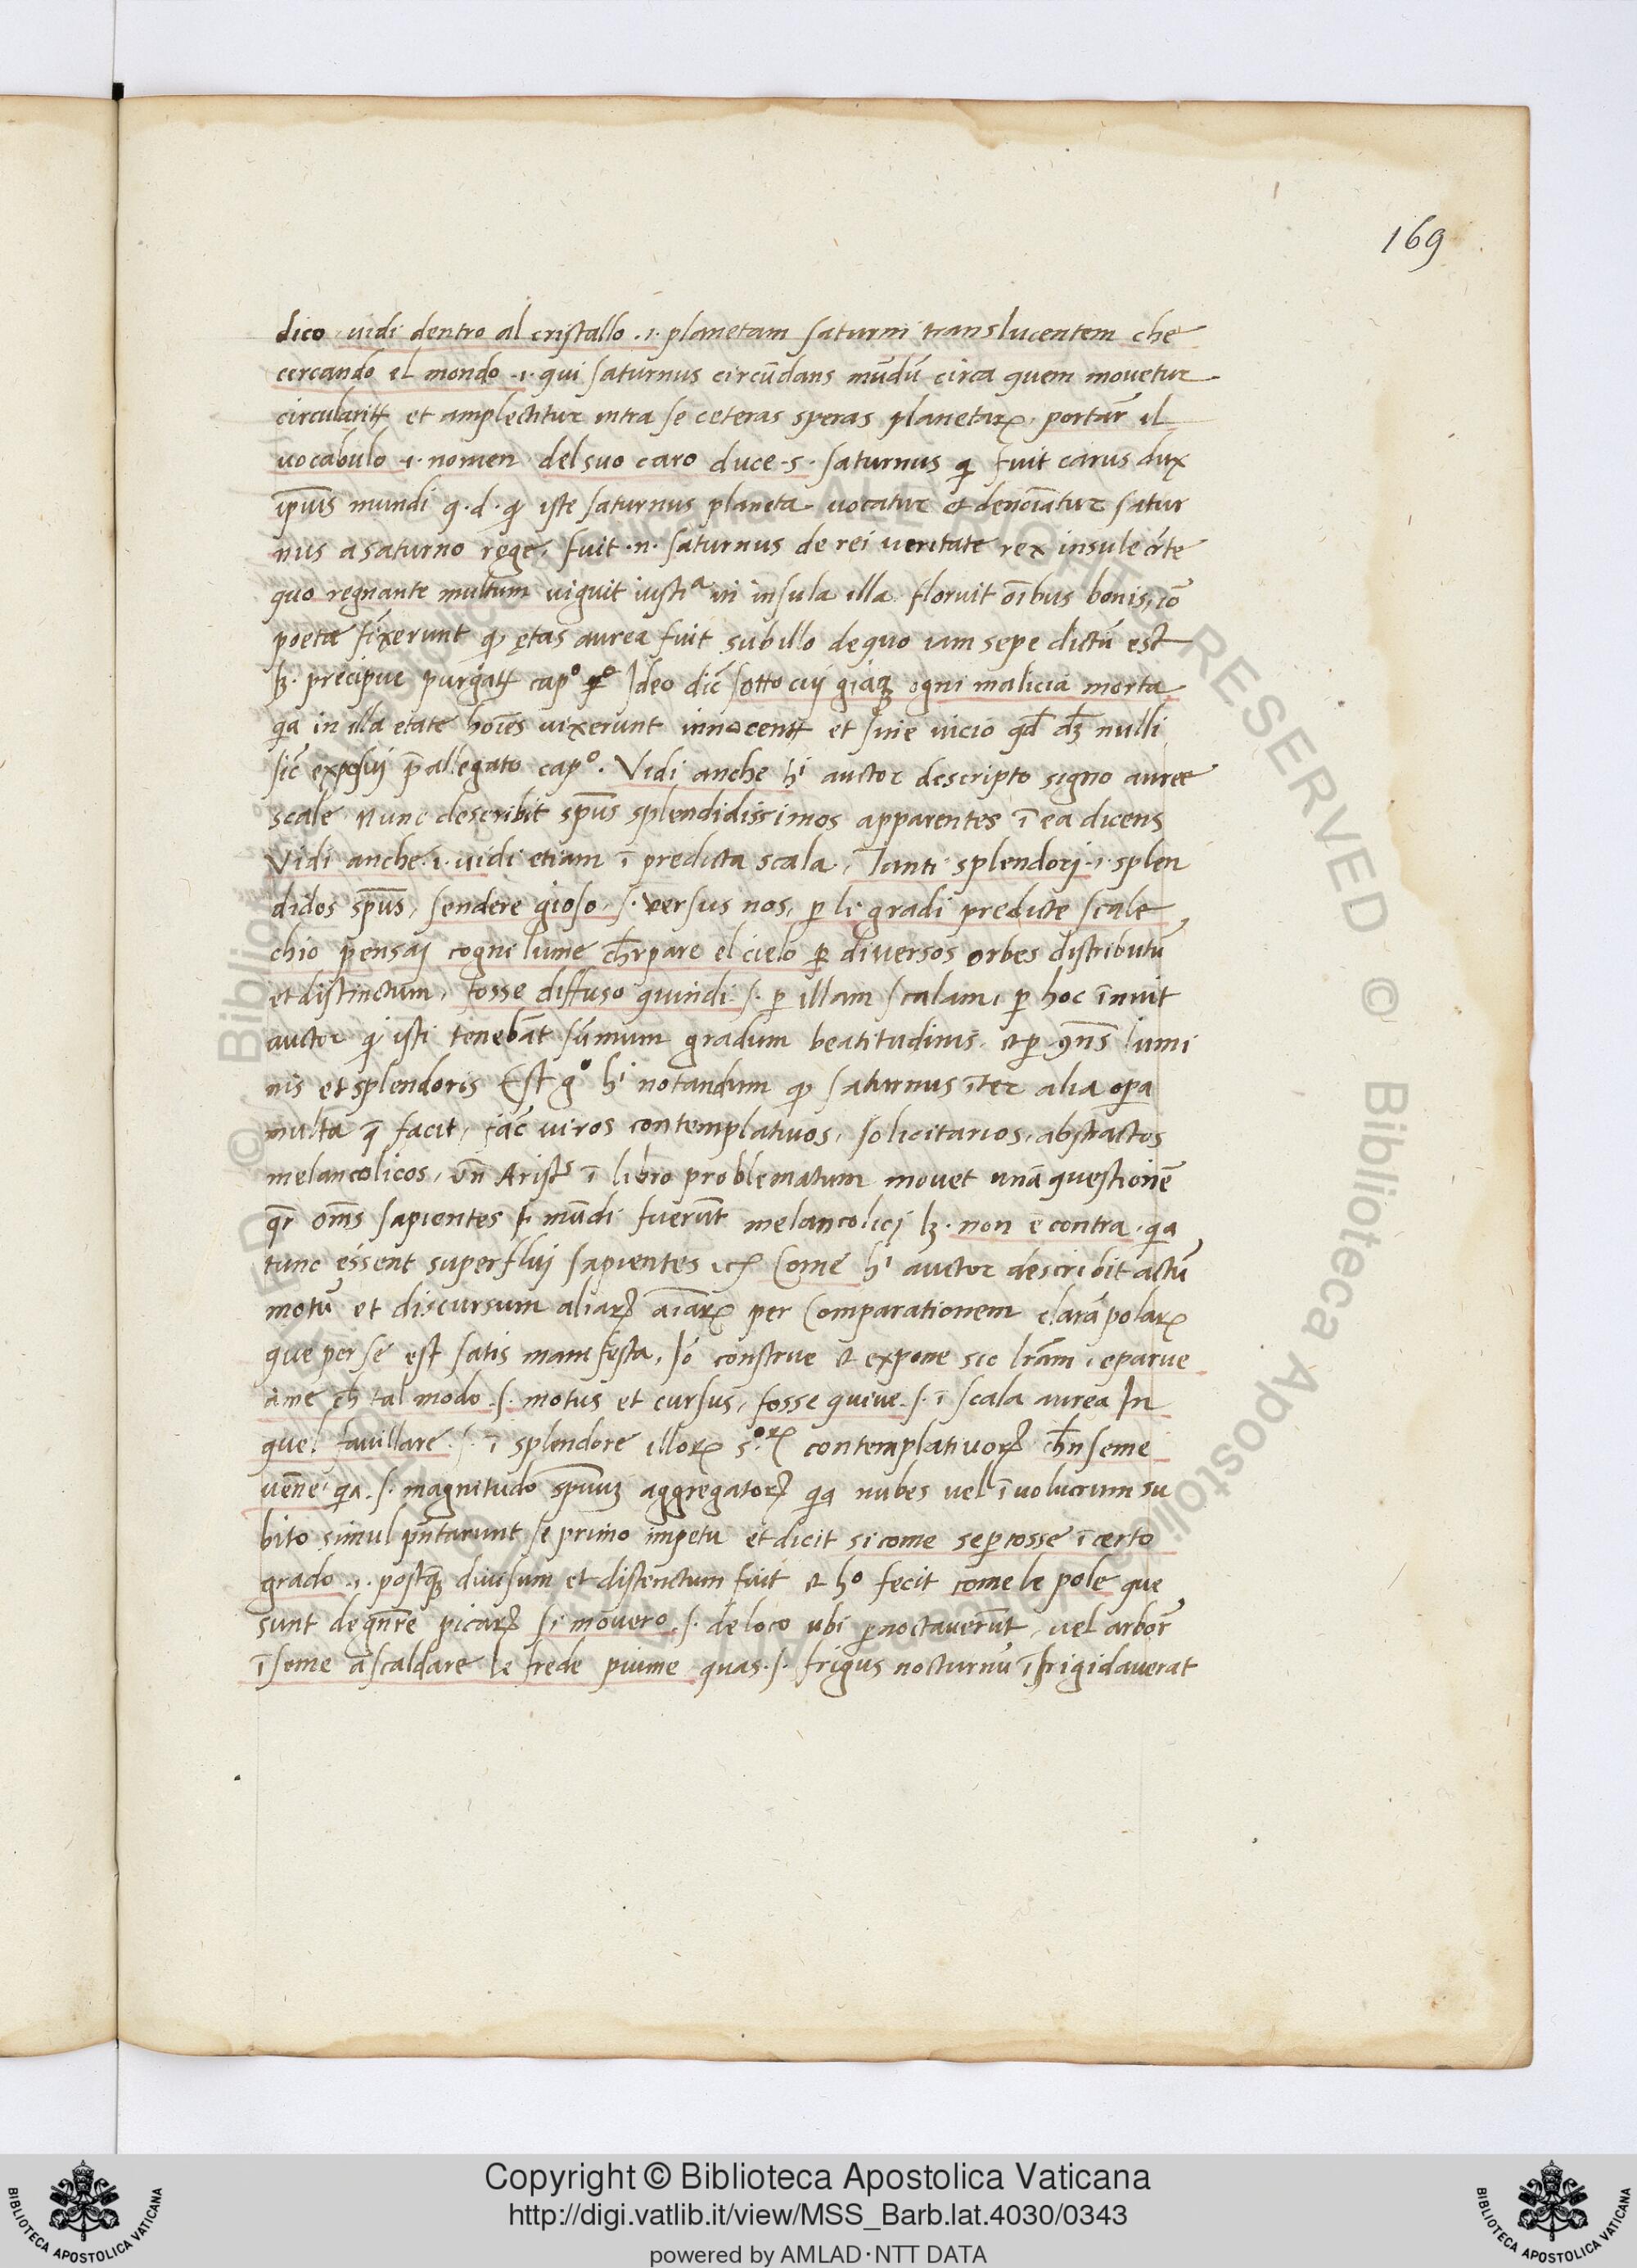 169
dico vidi dentro al cristallo .i. planetam saturni translucentem che
cercando el mondo .i. qui saturnus circūdans mūdū circa quem mouetur
circularitr et amplectitur intra se ceteras speras planetarꝝ. portar il
uocabulo .i. nomen del suo caro duce .s. saturnus qi fuit carus dux
ipius mundi q.d. ꝙ iste saturnus planeta uocatur et denoīatur satur
nus a saturno rege, fuit .n. saturnus de rei veritate rex insule crete
quo regnante multum uiguit iustiᵃ in insula illa floruit oībus bonis, iō
poetæ fixerunt ꝙ ętas aurea fuit sub illo de quo iam sepe dictū est
lꝫ. precipue purgatr capº Ideo dic̄ sotto cuj giaq; ogni malicia morta
qa in illa etate hoīes uixerunt innocentr et sine uicio nulli
sic exposuj p̄allegato capº. Vidi anche hⁱ auctor descripto signo auree
scale nunc describit sp̄us splendidissimos apparentes ī ea dicens
Vidi anche .i. uidi etiam ī predicta scala, Tanti splendori .i. splen
didos sp̄us, sendere gioso, .s. versus nos, ꝑ li gradi predicte scale
chio pensaj cogni lume ch̄rpare el cielo ꝑ diuersos orbes distributū
et distinctum, fosse diffuso quindi .s. ꝑ illam scalam, ꝑ hoc īnuit
auctor ꝙ isti tenebāt sūmum gradum beatitudinis et ꝑ ꝯns̄ lumi
nis et splendoris Est gº hⁱ notandum ꝙ saturnus īter alia oꝑa
multa q̄ facit, fac̄ uiros contemplatiuos, solicitarios, abstractos
melancolicos, vn̄ Aristˢ ī libro problematum mouet unā questionē
qr̄ om̄s sapientes mūdi fuerūt melancolicj lꝫ. non e contra, qa
tunc essent superfluj sapientes Come hⁱ auctor describit actū
motū et discursum aliarꝝ aīarꝝ per Comparationem clarā polarꝝ
que per se est satis manifesta, Iō construe et expone sic lr̄am, e parue
ame ch̄ tal modo .s. motus et cursus, fosse quiue .s. ī scala aurea In
quel fauillare .s. ī splendore illorꝝ contemplatiuorꝝ ch̄nseme
uēne, qa .s. magnitudo spūum aggregatorꝝ qa nubes uel īuolucrum su
bito simul pn̄tarunt se primo impetu et dicit si come seꝑcosse ī certo
grado .i. postq̄ diuisum et distinctum fuit et hº fecit come le pole que
sunt de gn̄re picarꝝ si mouero .s. de loco ubi ꝑnoctauerūt, uel arbor̄
īseme ascaldare le frede piume quas .s. frigus nocturnū īfrigidauerat
Copyright © Biblioteca Apostolica Vaticana
http://digi.vatlib.it/view/MSS_Barb.lat.4030/0343
powered by AMLAD·NTT DATA
BIBLIOTECA APOSTOLICA VATICANA
BIBLIOTECA APOSTOLICA VATICANA